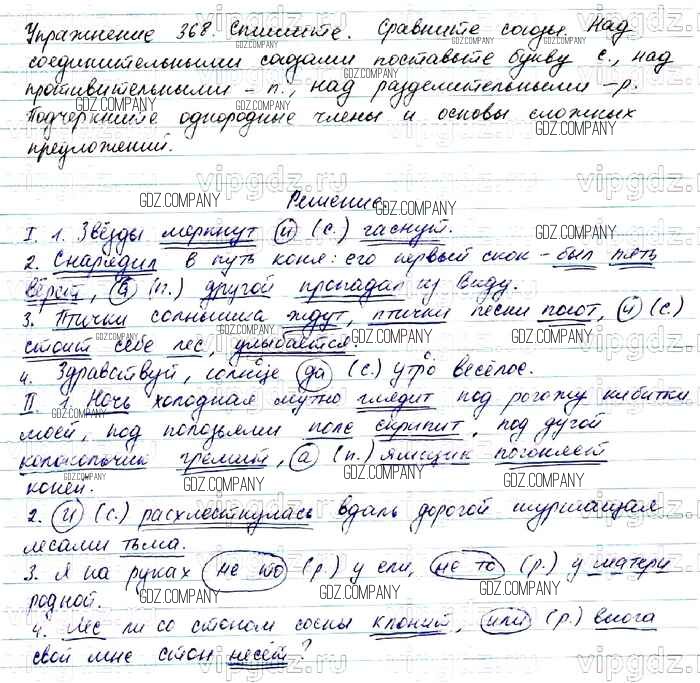 Упражнение 368. Спишите. Сравните союзы. Над
соединительными союзами поставьте букву с., над
противительными – п., над разделительными – р.
Подчеркните однородные члены и основы сложных
предложений.
Решение
I. 1. Звёзды меркнут и (с.) гаснут.
2. Снарядил в путь коня: его первый скок – был пять
вёрст, а (п.) другой пропадал из виду.
3. Птички солнышка ждут, птички песни поют, и (с.)
стоит себе лес, улыбается.
4. Здравствуй, солнце да (с.) утро веселое.
II. 1. Ночь холодная мутно глядит под рогожу кибитки
моей, под полозьями поле скрипит, под дугой
колокольчик гремит, а (п.) ямщик погоняет
коней.
2. И (с.) расхлестнулась вдаль дорогой шуршащая
лесами тьма.
3. Я на руках не то (р.) у ели, не то (р.) у матери
родной.
4. Лес ли со стоном сосны клонит, или (р.) вьюга
свой мне стон несёт?
GDZ.COMPANY
vipgdz.ru